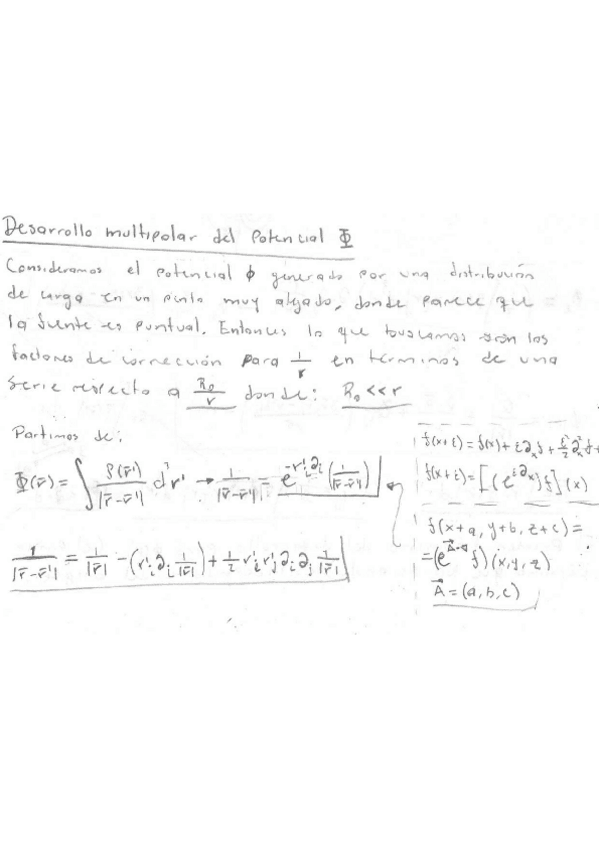 Desarrollo multipolar del Potencial Φ
Consideramos el potencial ϕ generado por una distribución
de carga en un punto muy alejado, donde parece que
la fuente es puntual. Entonces lo que buscamos son los
factores de corrección para 1/r en términos de una
serie respecto a R₀/r donde: R₀ << r
Partimos de:
Φ(r̄) = ∫ ρ(r̄')/|r̄-r̄'| d³r' → 1/|r̄-r̄'| = e^(-r'ᵢ∂ᵢ) (1/|r̄-r̄'|)
1/|r̄-r̄'| = 1/|r̄| - (r'ᵢ∂ᵢ 1/|r̄|) + 1/2 r'ᵢr'ⱼ∂ᵢ∂ⱼ 1/|r̄|
f(x+ε) = f(x) + ε∂ₓf + ε²/2 ∂ₓ²f +
f(x+ε) = [(e^(ε∂ₓ))f](x)
f(x+a, y+b, z+c) =
= (e^(A⃗·∇) f)(x,y,z)
A⃗ = (a,b,c)